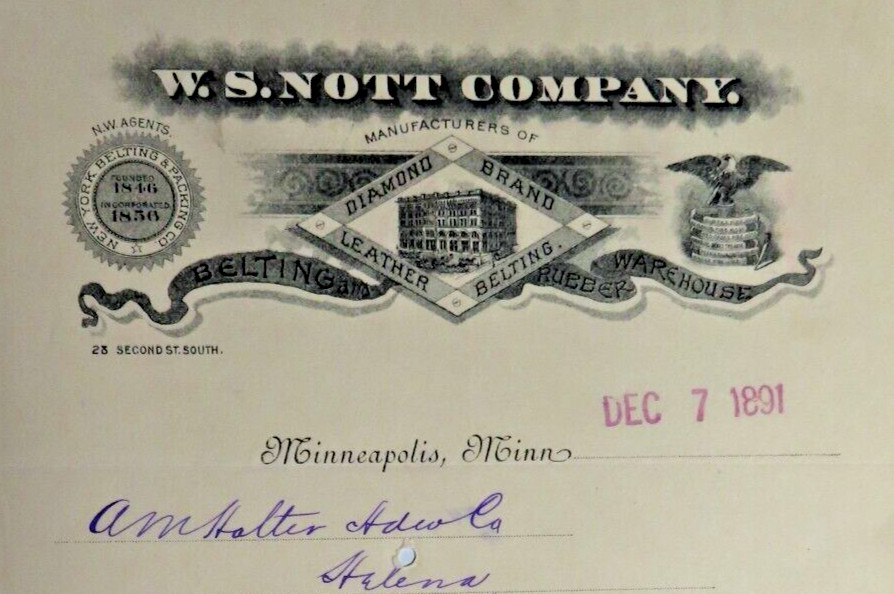 W. S. NOTT COMPANY.
N.W. AGENTS.
MANUFACTURERS OF
NEW YORK BELTING & PACKING CO
FOUNDED
1846
INCORPORATED
1856
DIAMOND BRAND
LEATHER BELTING.
BELTING and RUBBER WAREHOUSE
28 SECOND ST. SOUTH.
DEC 7 1891
Minneapolis, Minn
A M Holter Hdw Co
Helena